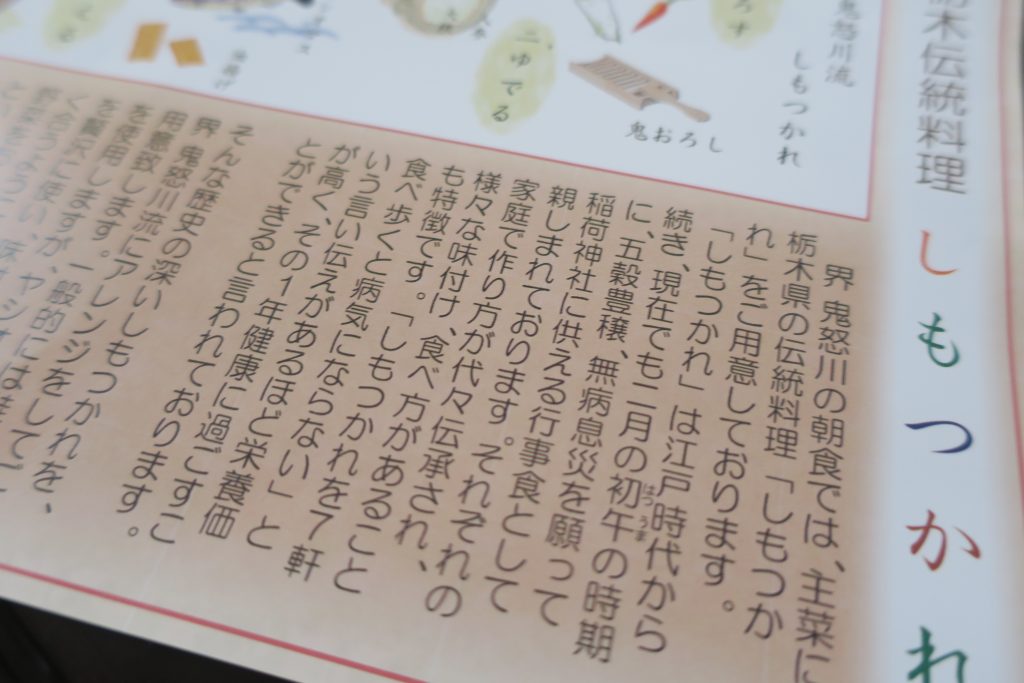 栃木伝統料理 しもつかれ
鬼怒川流
しもつかれ
鬼おろし
二、ゆでる
界 鬼怒川の朝食では、主菜に
栃木県の伝統料理「しもつか
れ」をご用意しております。
「しもつかれ」は江戸時代から
続き、現在でも二月の初午の時期
はつうま
に、五穀豊穣、無病息災を願って
稲荷神社に供える行事食として
親しまれております。それぞれの
家庭で作り方が代々伝承され、
様々な味付け、食べ方があること
も特徴です。「しもつかれを7軒
食べ歩くと病気にならない」と
いう言い伝えがあるほど栄養価
が高く、その1年健康に過ごすこ
とができると言われております。
そんな歴史の深いしもつかれを、
界 鬼怒川流にアレンジをしてご
用意致します。一般的には鮭
を使用しますが、ヤシオ
を贅沢に使い、味